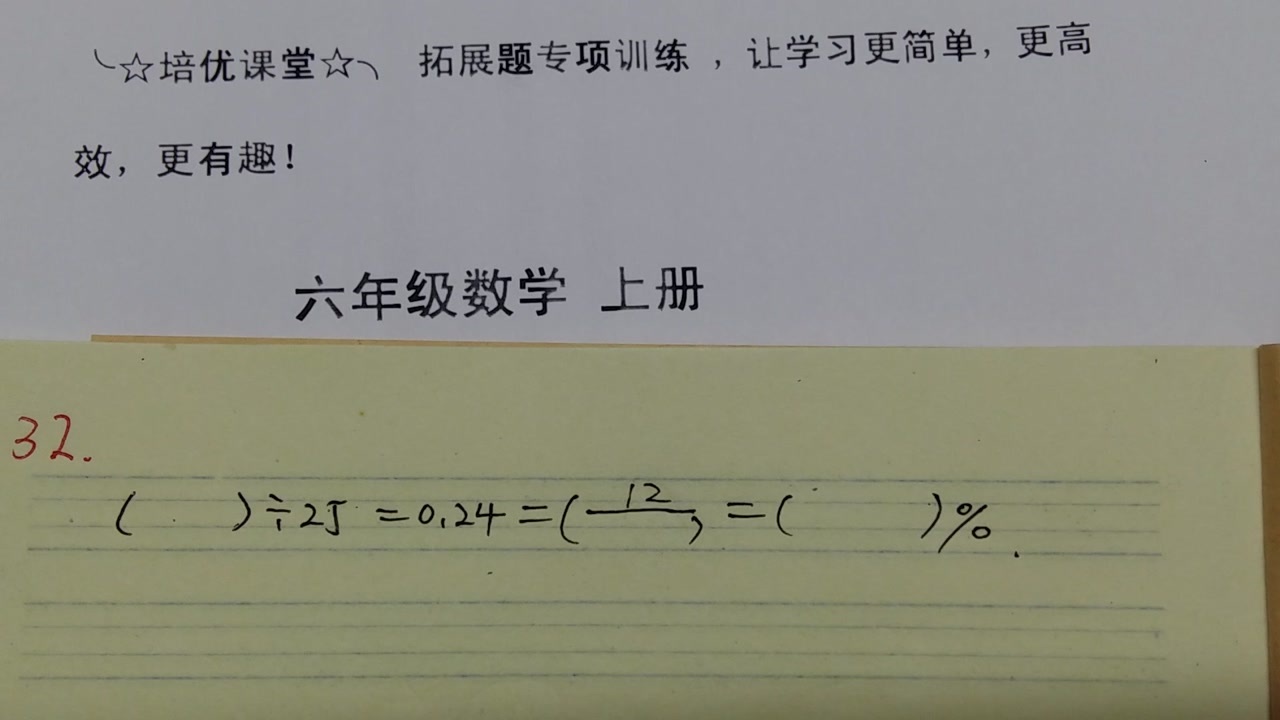 ╰☆培优课堂☆╮ 拓展题专项训练，让学习更简单，更高
效，更有趣！
六年级数学 上册
32.
( )÷25=0.24=12/( )=( )%.